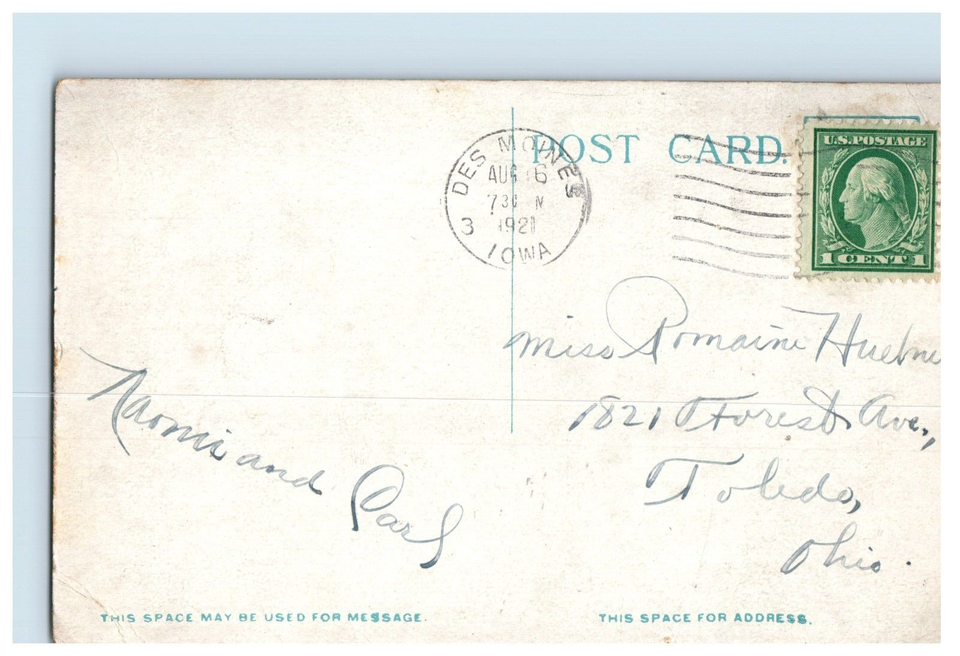 POST CARD.
DES MOINES
AUG 16
730 M
3 1921
IOWA
U.S. POSTAGE
1 CENT 1
Miss Romaine
1821 Forest Ave.,
Toledo,
Ohio.
Naomi and Carl
THIS SPACE MAY BE USED FOR MESSAGE.
THIS SPACE FOR ADDRESS.